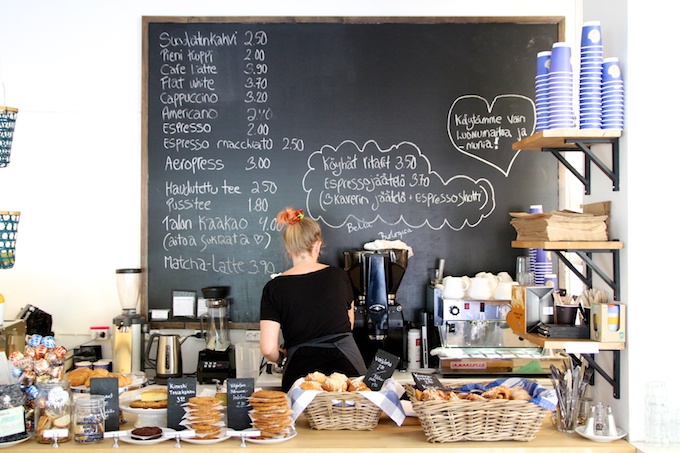 Suodatinkahvi 2.50
Pieni kuppi 2.00
Cafe Latte 3.90
Flat white 3.70
Cappuccino 3.20
Americano 2.70
Espresso 2.00
Espresso macchiato 2.50
Aeropress 3.00
Haudutettu tee 2.50
Pussitee 1.80
Talon Kaakao 4.00
(aitoa suklaata ♡)
Matcha-Latte 3.90
Köyhät ritarit 3.50
Espressojäätelö 3.70
(3 Kaverin jäätelö + espresso shotti)
Käytämme vain
luomumaitoa ja
munia!
Bella
Biologica